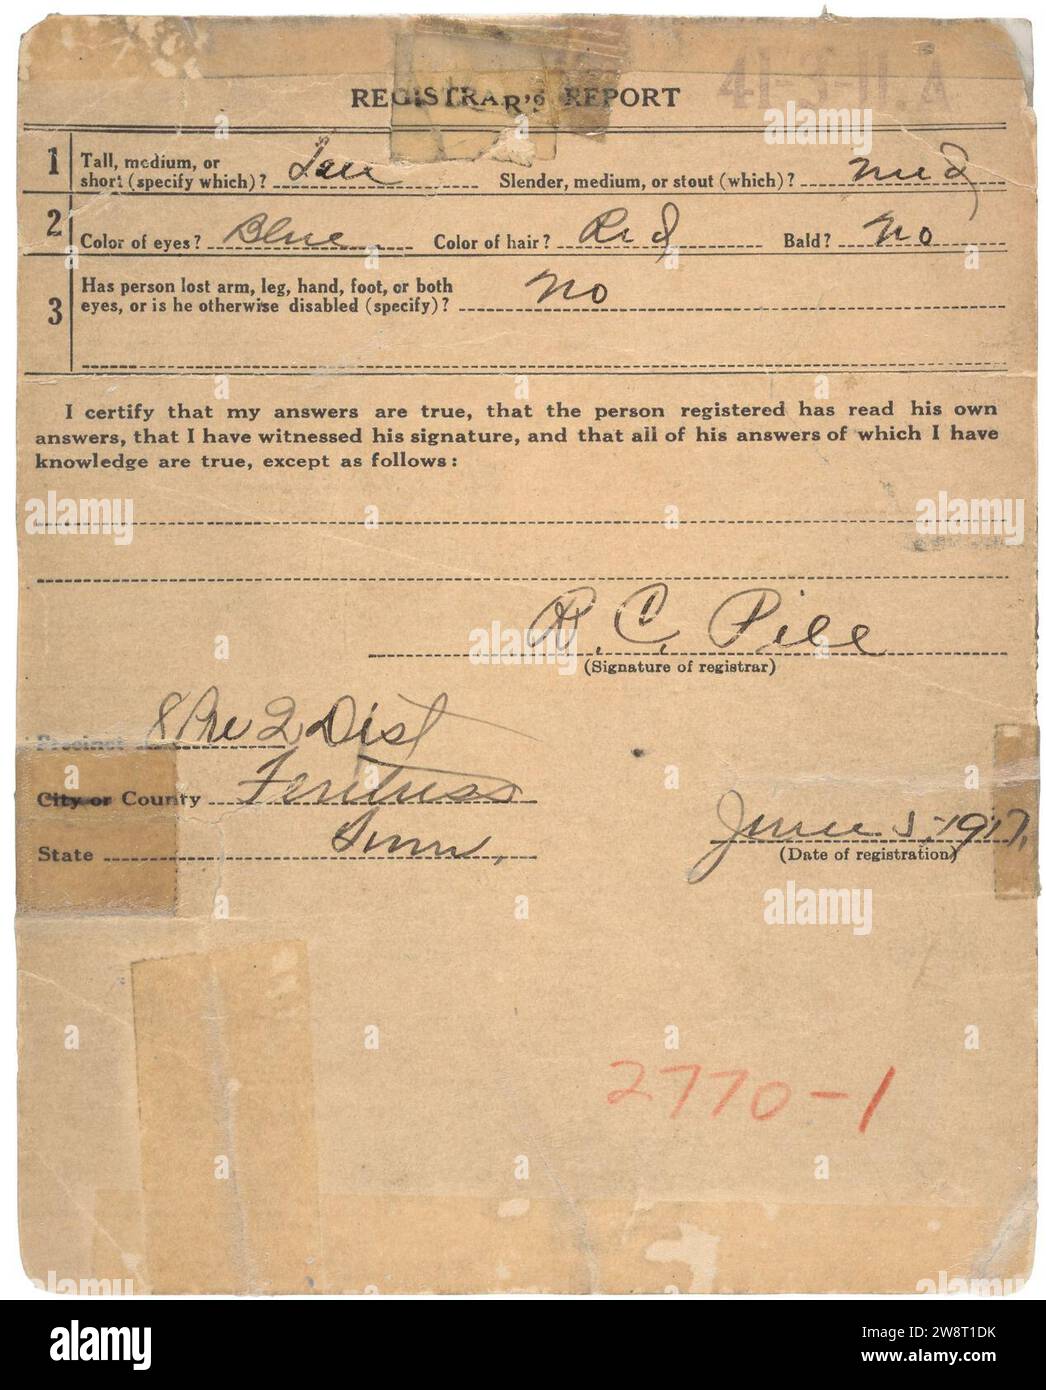 41-3-11. A
REGISTRAR'S REPORT
1 Tall, medium, or short (specify which)? Tall Slender, medium, or stout (which)? Med
2 Color of eyes? Blue Color of hair? Red Bald? No
3 Has person lost arm, leg, hand, foot, or both
eyes, or is he otherwise disabled (specify)? No
I certify that my answers are true, that the person registered has read his own
answers, that I have witnessed his signature, and that all of his answers of which I have
knowledge are true, except as follows:
R. C. Pile
(Signature of registrar)
Precinct 8 Pre 2 Dist
City or County Fentress
State Tenn. June 5, 1917,
(Date of registration)
2770-1
alamy
Image ID: 2W8T1DK
www.alamy.com